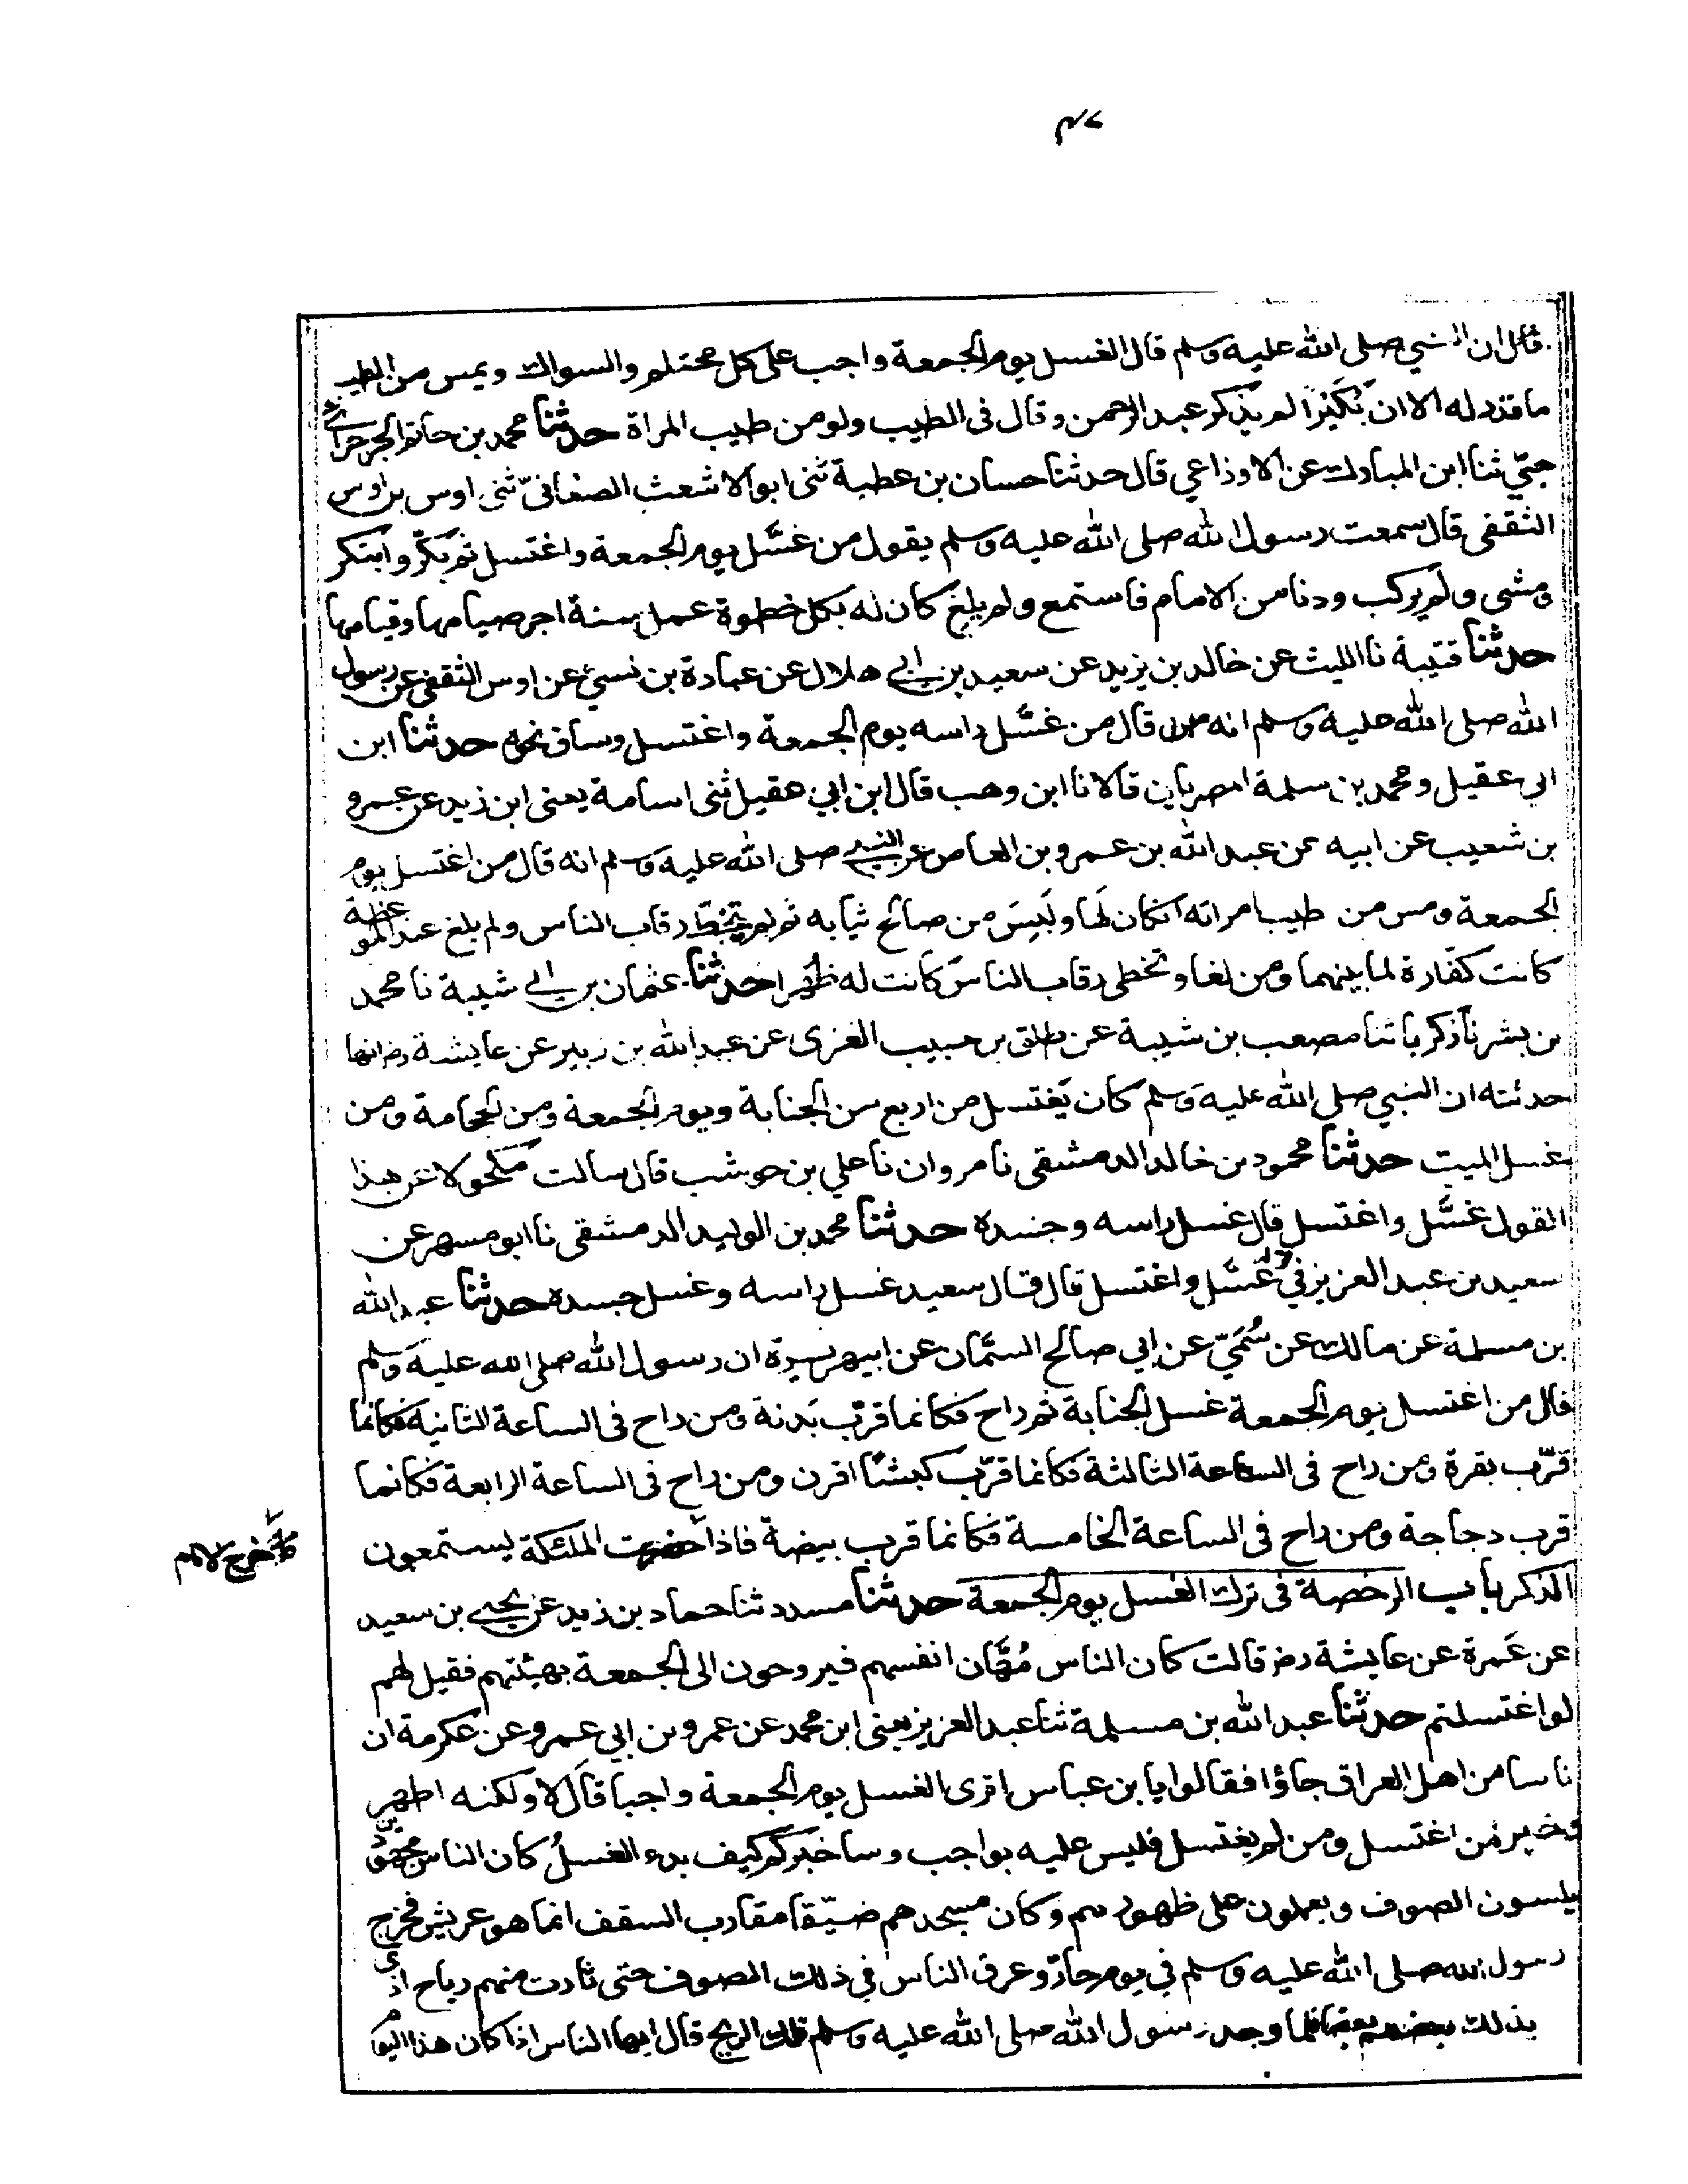 ٤٧
قال ان النبي صلى الله عليه وسلم قال الغسل يوم الجمعة واجب على كل محتلم والسواك ويمس من الطيب
ما قدر له الا ان بُكَيْرًا لم يذكر عبد الرحمن وقال فى الطيب ولو من طيب المراة حدثنا محمد بن حاتم الجرجرائي
حبّي ثنا ابن المبارك عن الاوزاعي قال حدثنا حسان بن عطية ثنى ابو الاشعث الصنعانىّ ثنى اوس بن اوس
الثقفى قال سمعت رسول الله صلى الله عليه وسلم يقول من غسَّل يوم الجمعة واغتسل ثم بكّر وابتكر
ومشى ولم يركب ودنا من الامام فاستمع ولم يلغ كان له بكل خطوة عمل سنة اجر صيامها وقيامها
حدثنا قتيبة نا الليث عن خالد بن يزيد عن سعيد بن ابي هلال عن عبادة بن نسي عن اوس الثقفى عن رسول
الله صلى الله عليه وسلم انه قال من غسَّل راسه يوم الجمعة واغتسل وساق نحوه حدثنا ابن
ابي عقيل ومحمد بن سلمة المصريان قالا نا ابن وهب قال ابن ابي عقيل ثنى اسامة يعنى ابن زيد عن عمرو
بن شعيب عن ابيه عن عبد الله بن عمرو بن العاص عن النبي صلى الله عليه وسلم انه قال من اغتسل يوم
الجمعة ومس من طيب امراته انكان لها ولَبِسَ من صالح ثيابه ثم لم يتخط رقاب الناس ولم يلغ عند الموعظة
كانت كفارة لما بينهما ومن لغا وتخطى رقاب الناس كانت له ظهرا حدثنا عثمان بن ابي شيبة نا محمد
بن بشر نا زكريا ثنا مصعب بن شيبة عن طلق بن حبيب العنزى عن عبد الله بن زبير عن عايشة رض انها
حدثته ان النبي صلى الله عليه وسلم كان يَغتسل من اربع من الجنابة ويوم الجمعة ومن الحجامة ومن
غسل الميت حدثنا محمود بن خالد الدمشقى نا مروان نا علي بن حوشب قال سالت مكحولا عن هذا
القول غسَّل واغتسل قال غسل راسه وجسده حدثنا محمد بن الوليد الدمشقى نا ابو مسهر عن
سعيد بن عبد العزيز في غسَّل واغتسل قال قال سعيد غسل راسه وغسل جسده حدثنا عبد الله
بن مسلمة عن مالك عن سُمَيّ عن ابي صالح السمّان عن ابي هريرة ان رسول الله صلى الله عليه وسلم
قال من اغتسل يوم الجمعة غسل الجنابة ثم راح فكانما قرّب بَدنة ومن راح فى الساعة الثانية فكانما
قرّب بقرة ومن راح فى الساعة الثالثة فكانما قرّب كبشًا اقرن ومن راح فى الساعة الرابعة فكانما
قرب دجاجة ومن راح فى الساعة الخامسة فكانما قرب بيضة فاذا حضرت الملئكة يستمعون
خرج الامام
الذكر باب الرخصة فى ترك الغسل يوم الجمعة حدثنا مسدد ثنا حماد بن زيد عن يحيى بن سعيد
عن عَمرة عن عايشة رض قالت كان الناس مُهَّان انفسهم فيروحون الى الجمعة بهيئتهم فقيل لهم
لو اغتسلتم حدثنا عبد الله بن مسلمة ثنا عبد العزيز يعنى ابن محمد عن عمرو بن ابي عمرو عن عكرمة ان
ناسا من اهل العراق جاؤا فقالوا يا بن عباس اترى الغسل يوم الجمعة واجبا قال لا ولكنه اطهر
وخير لمن اغتسل ومن لم يغتسل فليس عليه بواجب وساخبركم كيف بدء الغسلُ كان الناس مجهودين
يلبسون الصوف ويعملون على ظهورهم وكان مسجدهم ضيّقا مقارب السقف انما هو عريش فخرج
رسول الله صلى الله عليه وسلم في يوم حارّ وعرق الناس في ذلك الصوف حتى ثارت منهم رياح اذى
بذلك بعضهم بعضا فلما وجد رسول الله صلى الله عليه وسلم تلك الريح قال ايها الناس اذا كان هذا اليوم